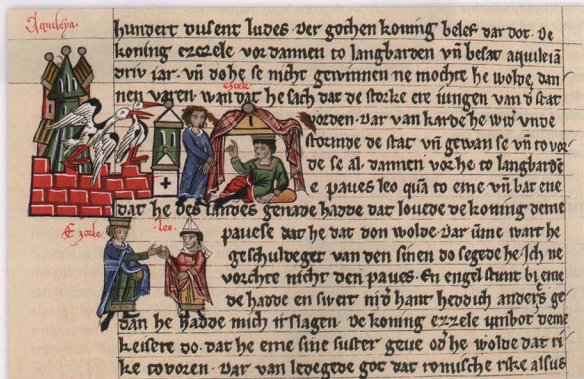 Aquileya.
hundert dusent ludes. Der gothen koning belef dar tot. De
koning etzele vor dannen to langbarden vn̄ besat aquileiā
driv iar. vn̄ do he se nicht gewinnen ne mochte he wolde dan
nen varen. wan dat he sach dat de storke ere iungen van d' stat
etzele
vorden. Dar van karde he wid' vnde
stormde de stat vn̄ gewan se vn̄ to vor
de se al. dannen vor he to langbardē
e paues leo quā to eme vn̄ bat ene
dat he des landes genade hadde dat louede de koning deme
Etzele. leo.
pauese dat he dat don wolde. Dar ūme wart he
geschuldeget van den sinen do segede he. Ich ne
vorchte nicht den paues. En engel stunt bi eme
de hadde en swert in d' hant hedde ich anders ge
dan he hadde mich irslagen. De koning ezzele unbot deme
keisere do. dat he eme sine suster geue od' he wolde dat ri
ke tovoren. Dar van ledegede got dat romische rike alsus